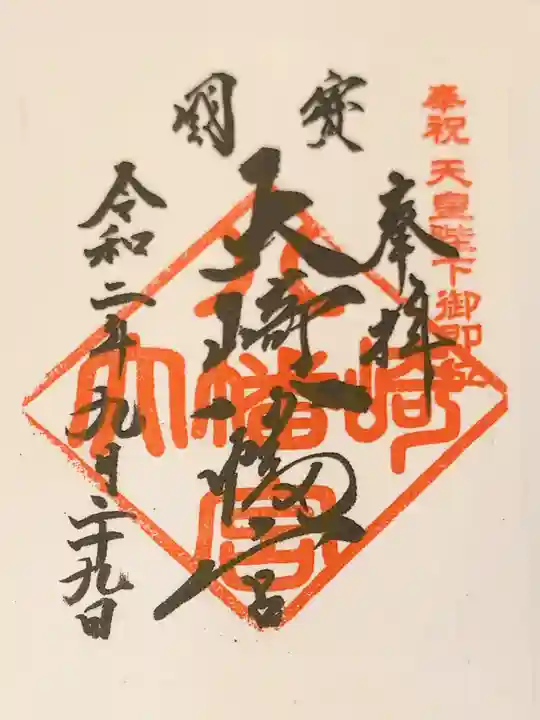 奉祝 天皇陛下御即位
奉拝
國寳
大崎八幡宮
令和二年九月二十九日
大崎八幡宮